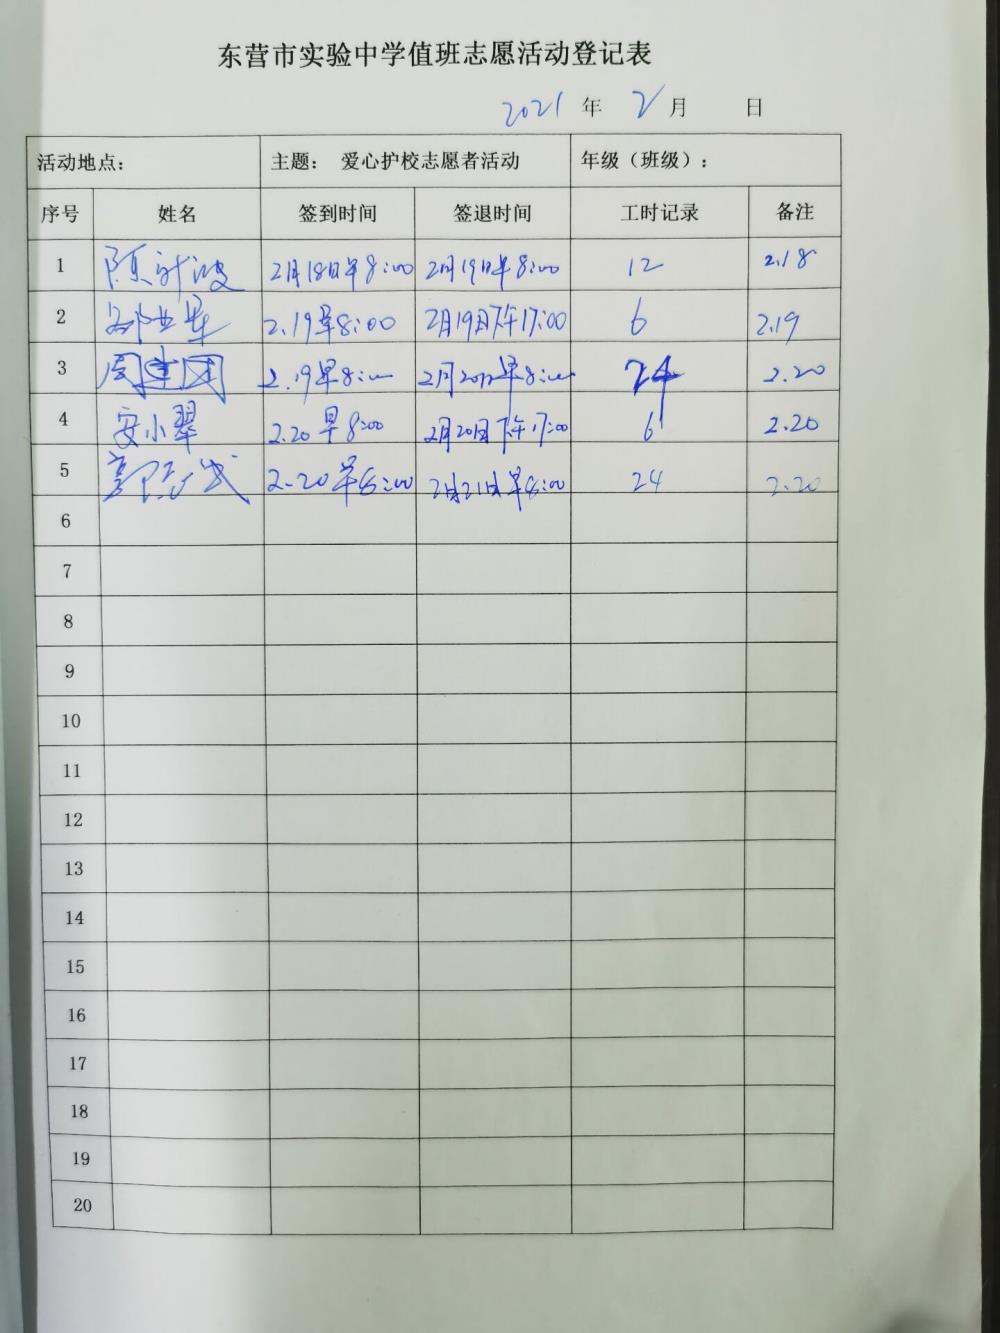 东营市实验中学值班志愿活动登记表
2021 年 2 月 日
活动地点： 主题： 爱心护校志愿者活动 年级（班级）：
序号 姓名 签到时间 签退时间 工时记录 备注
1 陈 2月18日早8:00 2月19日早8:00 12 2.18
2 2.19早8:00 2月19日下午17:00 6 2.19
3 周建国 2.19早8:00 2月20日早8:00 24 2.20
4 安小翠 2.20早8:00 2月20日下午17:00 6 2.20
5 2.20早8:00 2月21日早8:00 24 2.20
6
7
8
9
10
11
12
13
14
15
16
17
18
19
20